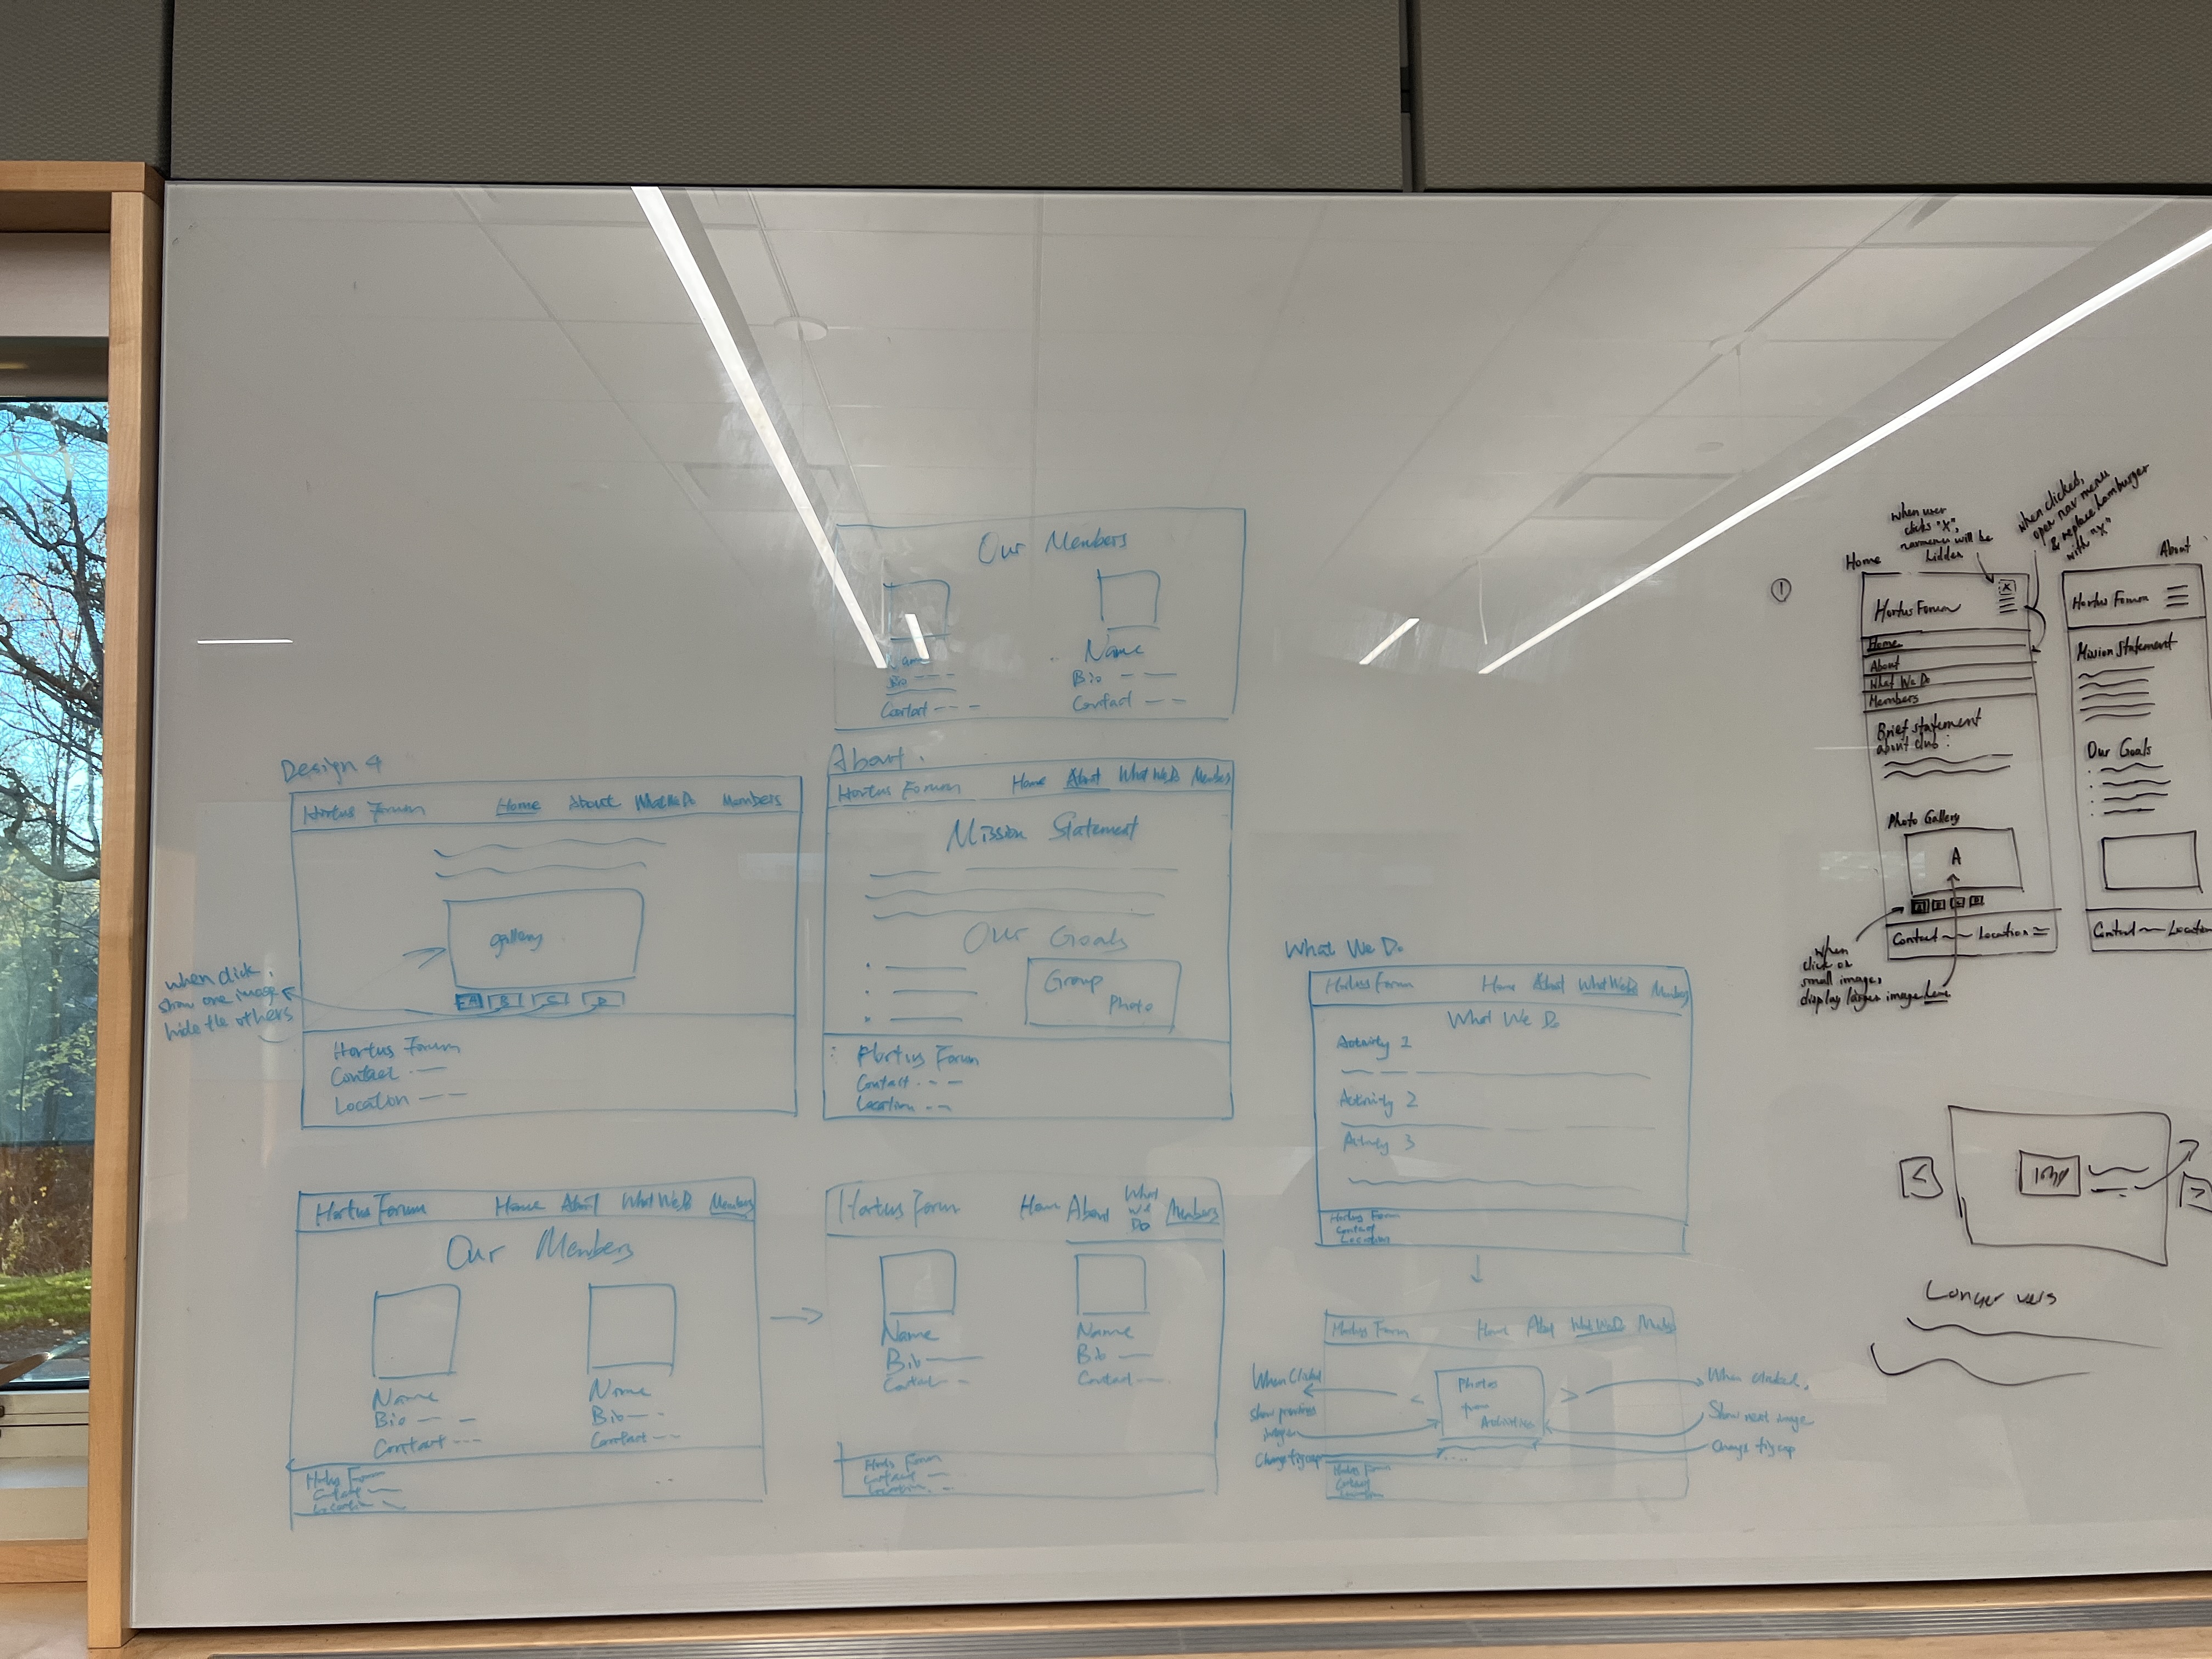 Our Members
Name
Bio
Contact
Name
Bio
Contact
Design 4
Hortus Forum Home About What We Do Members
gallery
A B C D
when click,
show one image
hide the others
Hortus Forum
Contact
Location
About
Hortus Forum Home About What We Do Members
Mission Statement
Our Goals
Group
Photo
Hortus Forum
Contact
Location
Hortus Forum Home About What We Do Members
Our Members
Name
Bio
Contact
Name
Bio
Contact
Hortus Forum
Contact
Location
Hortus Forum Home About What We Do Members
Name
Bio
Contact
Name
Bio
Contact
Hortus Forum
Contact
Location
What We Do
Hortus Forum Home About What We Do Members
What We Do
Activity 1
Activity 2
Activity 3
Hortus Forum
Contact
Location
Hortus Forum Home About What We Do Members
< Photos
from
Activities >
When Clicked
show previous
image
Change figcap
When clicked,
Show next image
Change figcap
Hortus Forum
Contact
Location
when user
clicks "X",
navmenu will be
hidden
when clicked,
open nav menu
& replace hamburger
with "X"
!
Home
Hortus Forum X
Home
About
What We Do
Members
Brief statement
about club:
Photo Gallery
A
A B C D
Contact Location
When
click on
small image,
display larger image here
About
Hortus Forum
Mission Statement
Our Goals
Contact Location
<
>
Longer vers